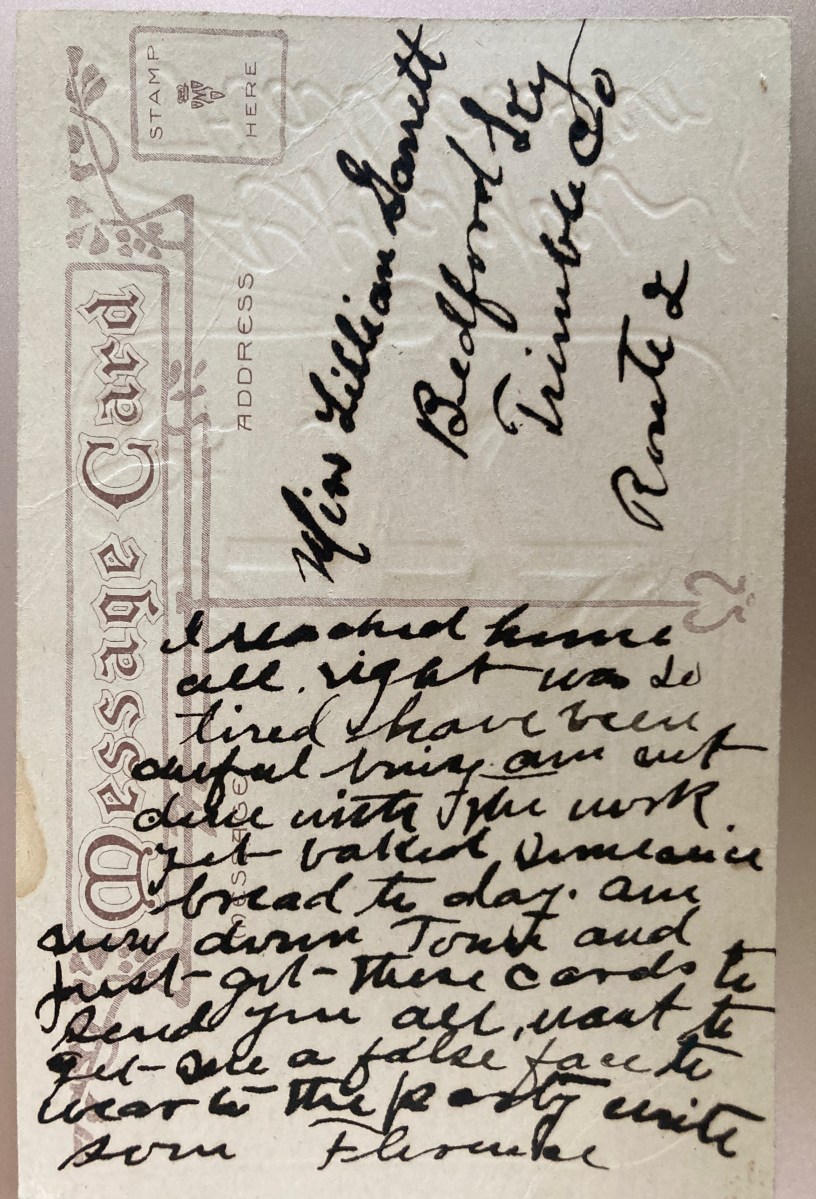 Message Card
STAMP
HERE
ADDRESS
Miss Lillian Garrett
Bedford Ky
Trimble Co
Route 2
MESSAGE
I reached home
all right was so
tired & have been
awful busy am not
done with the work
yet baked some
bread to day. am
now down Town and
just got these cards to
send you all, want to
get me a false face to
wear to the party write
soon Florence